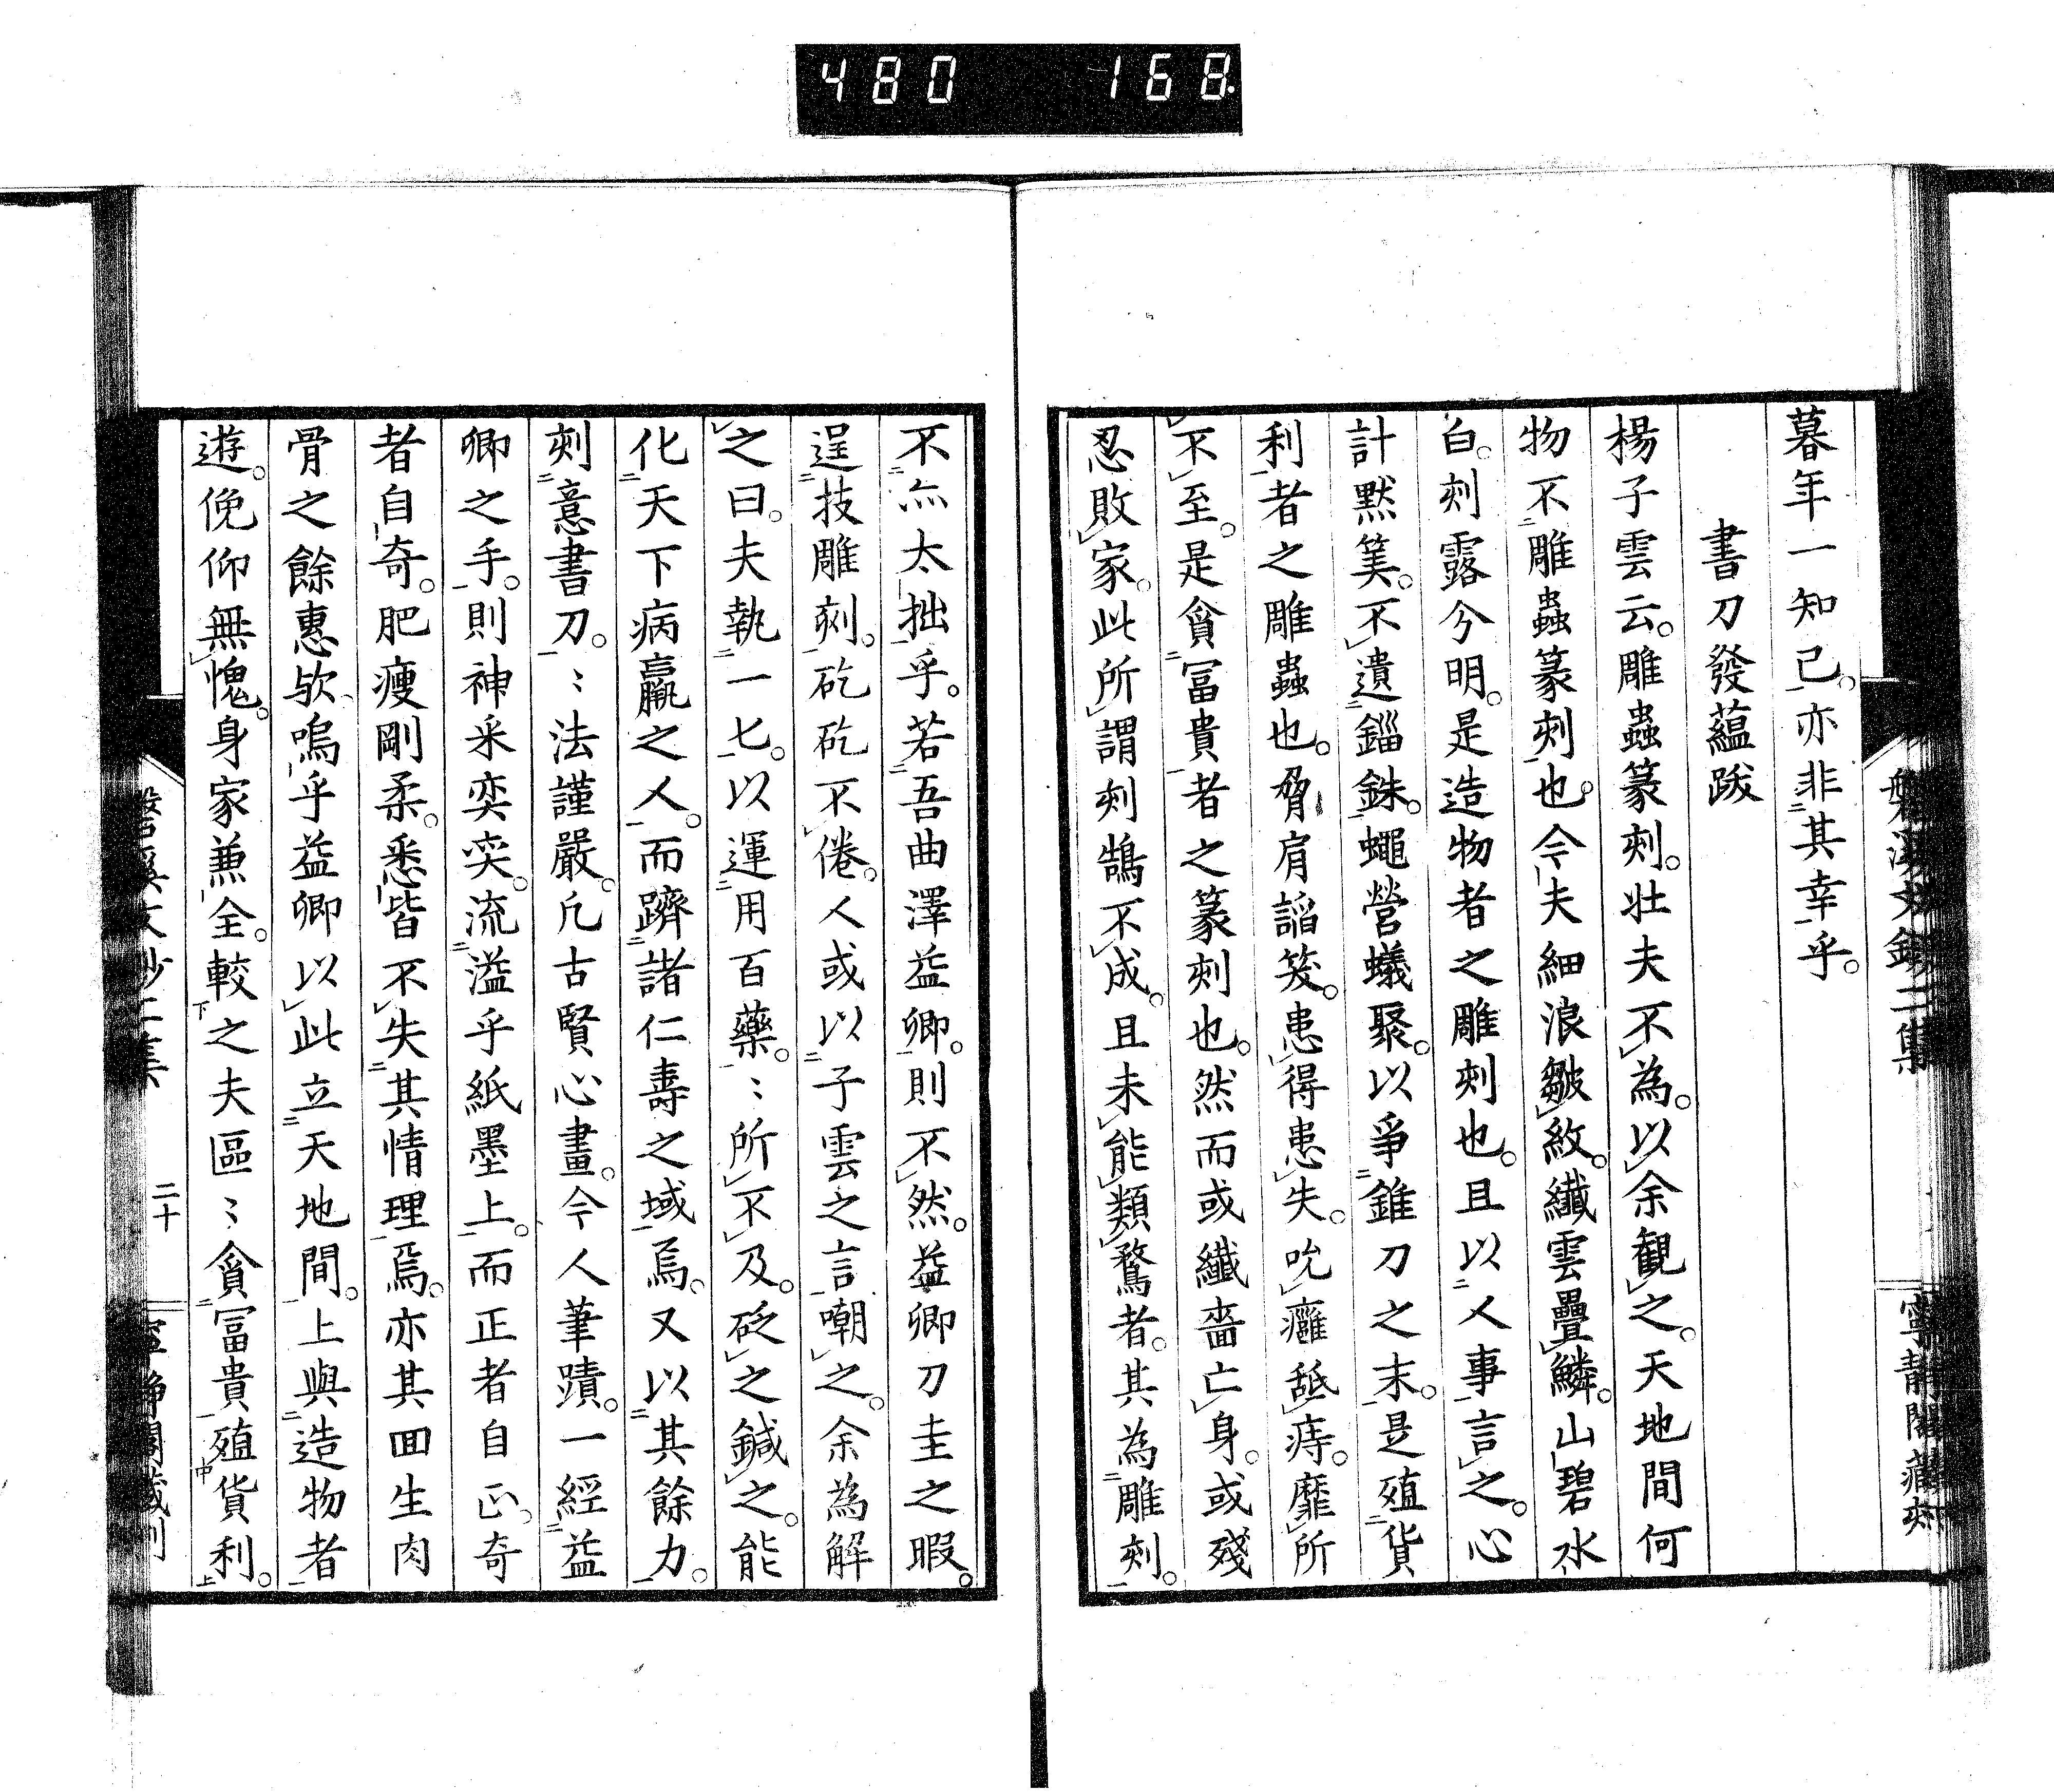 480 168
暮年一知己。亦非其幸乎。
書刀發蘊跋
楊子雲云。雕蟲篆刻。壯夫不為。以余観之。天地間何
物不雕蟲篆刻也。今夫細浪皺紋。纖雲疊鱗。山碧水
白。刻露兮明。是造物者之雕刻也。且以人事言之。心
計默筭。不遺錙銖。蠅營蟻聚。以爭錐刀之末。是殖貨
利者之雕蟲也。脅肩諂笑。患得患失。吮癰舐痔。靡所
不至。是貪冨貴者之篆刻也。然而或纖嗇亡身。或殘
忍敗家。此所謂刻鵠不成。且未能類鶩者。其為雕刻。
不亦太拙乎。若吾曲澤益卿。則不然。益卿刀圭之暇。
逞技雕刻。矻矻不倦。人或以子雲之言嘲之。余為解
之曰。夫執一匕。以運用百藥。〻所不及。砭之鍼之。能
化天下病羸之人。而躋諸仁壽之域焉。又以其餘力。
刻意書刀。〻法謹嚴。凡古賢心畫。今人筆蹟。一經益
卿之手。則神采奕奕。流溢乎紙墨上。而正者自正。奇
者自奇。肥瘦剛柔。悉皆不失其情理焉。亦其回生肉
骨之餘惠欤。嗚乎益卿以此立天地間。上與造物者
遊。俛仰無愧。身家兼全。較之夫區〻貪冨貴殖貨利。
二十
寧靜閣藏刻